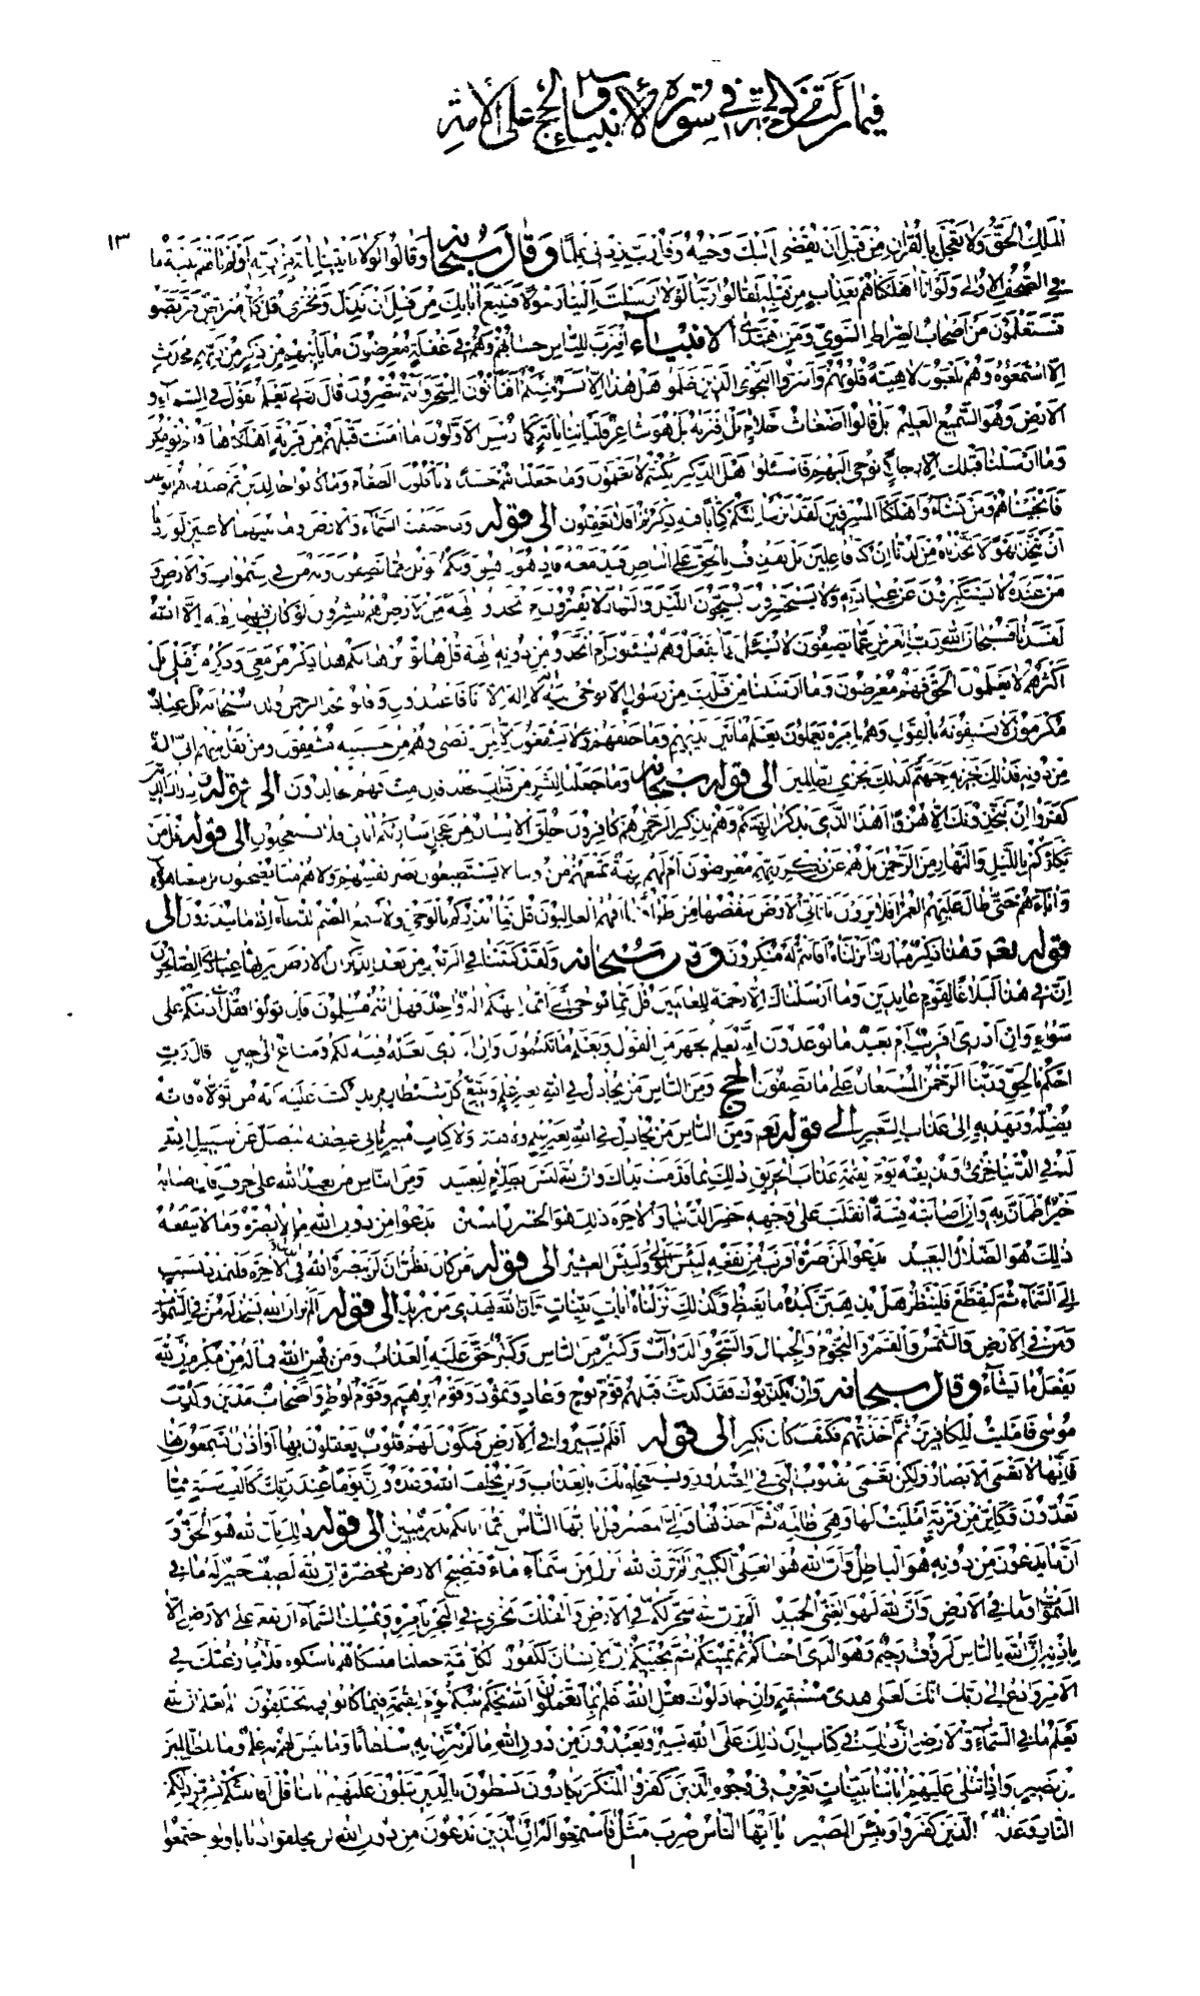 فيما تقر الحجة في سورة الأنبياء والحج على الأمة
١٣
الملك الحق ولا تعجل بالقرآن من قبل أن يقضى إليك وحيه وقل رب زدني علما وقال سبحانه وقالوا لولا يأتينا بآية من ربه أولم تأتهم بينة ما
في الصحف الأولى ولو أنا أهلكناهم بعذاب من قبله لقالوا ربنا لولا أرسلت إلينا رسولا فنتبع آياتك من قبل أن نذل ونخزى قل كل متربص فتربصوا
فستعلمون من أصحاب الصراط السوي ومن اهتدى الأنبياء اقترب للناس حسابهم وهم في غفلة معرضون ما يأتيهم من ذكر من ربهم محدث
إلا استمعوه وهم يلعبون لاهية قلوبهم وأسروا النجوى الذين ظلموا هل هذا إلا بشر مثلكم أفتأتون السحر وأنتم تبصرون قال ربي يعلم القول في السماء و
الأرض وهو السميع العليم بل قالوا أضغاث أحلام بل افتريه بل هو شاعر فليأتنا بآية كما أرسل الأولون ما آمنت قبلهم من قرية أهلكناها أفهم يؤمنون
وما أرسلنا قبلك إلا رجالا نوحي إليهم فاسئلوا أهل الذكر إن كنتم لا تعلمون وما جعلناهم جسدا لا يأكلون الطعام وما كانوا خالدين ثم صدقناهم الوعد
فأنجيناهم ومن نشاء وأهلكنا المسرفين لقد أنزلنا إليكم كتابا فيه ذكركم أفلا تعقلون إلى قوله وما خلقنا السماء والأرض وما بينهما لاعبين لو أردنا
أن نتخذ لهوا لاتخذناه من لدنا إن كنا فاعلين بل نقذف بالحق على الباطل فيدمغه فإذا هو زاهق ولكم الويل مما تصفون وله من في السموات والأرض و
من عنده لا يستكبرون عن عبادته ولا يستحسرون يسبحون الليل والنهار لا يفترون أم اتخذوا آلهة من الأرض هم ينشرون لو كان فيهما آلهة إلا الله
لفسدتا فسبحان الله رب العرش عما يصفون لا يسئل عما يفعل وهم يسئلون أم اتخذوا من دونه آلهة قل هاتوا برهانكم هذا ذكر من معي وذكر من قبلي بل
أكثرهم لا يعلمون الحق فهم معرضون وما أرسلنا من قبلك من رسول إلا نوحي إليه أنه لا إله إلا أنا فاعبدون وقالوا اتخذ الرحمن ولدا سبحانه بل عباد
مكرمون لا يسبقونه بالقول وهم بأمره يعملون يعلم ما بين أيديهم وما خلفهم ولا يشفعون إلا لمن ارتضى وهم من خشيته مشفقون ومن يقل منهم إني إله
من دونه فذلك نجزيه جهنم كذلك نجزي الظالمين إلى قوله سبحانه وما جعلنا لبشر من قبلك الخلد أفإن مت فهم خالدون إلى قوله وإذا رآك الذين
كفروا إن يتخذونك إلا هزوا أهذا الذي يذكر آلهتكم وهم بذكر الرحمن هم كافرون خلق الإنسان من عجل سأريكم آياتي فلا تستعجلون إلى قوله قل من
يكلؤكم بالليل والنهار من الرحمن بل هم عن ذكر ربهم معرضون أم لهم آلهة تمنعهم من دوننا لا يستطيعون نصر أنفسهم ولا هم منا يصحبون بل متعنا هؤلاء
وآباءهم حتى طال عليهم العمر أفلا يرون أنا نأتي الأرض ننقصها من أطرافها أفهم الغالبون قل إنما أنذركم بالوحي ولا يسمع الصم الدعاء إذا ما ينذرون إلى
قوله تعالى وهذا ذكر مبارك أنزلناه أفأنتم له منكرون وقال سبحانه ولقد كتبنا في الزبور من بعد الذكر أن الأرض يرثها عبادي الصالحون
إن في هذا لبلاغا لقوم عابدين وما أرسلناك إلا رحمة للعالمين قل إنما يوحى إلي أنما إلهكم إله واحد فهل أنتم مسلمون فإن تولوا فقل آذنتكم على
سواء وإن أدري أقريب أم بعيد ما توعدون إنه يعلم الجهر من القول ويعلم ما تكتمون وإن أدري لعله فتنة لكم ومتاع إلى حين قال رب
احكم بالحق وربنا الرحمن المستعان على ما تصفون الحج ومن الناس من يجادل في الله بغير علم ويتبع كل شيطان مريد كتب عليه أنه من تولاه فأنه
يضله ويهديه إلى عذاب السعير إلى قوله تعالى ومن الناس من يجادل في الله بغير علم ولا هدى ولا كتاب منير ثاني عطفه ليضل عن سبيل الله
له في الدنيا خزي ونذيقه يوم القيمة عذاب الحريق ذلك بما قدمت يداك وأن الله ليس بظلام للعبيد ومن الناس من يعبد الله على حرف فإن أصابه
خير اطمأن به وإن أصابته فتنة انقلب على وجهه خسر الدنيا والآخرة ذلك هو الخسران المبين يدعوا من دون الله ما لا يضره وما لا ينفعه
ذلك هو الضلال البعيد يدعو لمن ضره أقرب من نفعه لبئس المولى ولبئس العشير إلى قوله من كان يظن أن لن ينصره الله في الدنيا والآخرة فليمدد بسبب
إلى السماء ثم ليقطع فلينظر هل يذهبن كيده ما يغيظ وكذلك أنزلناه آيات بينات وأن الله يهدي من يريد إلى قوله ألم تر أن الله يسجد له من في السموات
ومن في الأرض والشمس والقمر والنجوم والجبال والشجر والدواب وكثير من الناس وكثير حق عليه العذاب ومن يهن الله فما له من مكرم إن الله
يفعل ما يشاء وقال سبحانه وإن يكذبوك فقد كذبت قبلهم قوم نوح وعاد وثمود وقوم إبرهيم وقوم لوط وأصحاب مدين وكذب
موسى فأمليت للكافرين ثم أخذتهم فكيف كان نكير إلى قوله أفلم يسيروا في الأرض فتكون لهم قلوب يعقلون بها أو آذان يسمعون بها
فإنها لا تعمى الأبصار ولكن تعمى القلوب التي في الصدور ويستعجلونك بالعذاب ولن يخلف الله وعده وإن يوما عند ربك كألف سنة مما
تعدون وكأين من قرية أمليت لها وهي ظالمة ثم أخذتها وإلي المصير قل يا أيها الناس إنما أنا لكم نذير مبين إلى قوله ذلك بأن الله هو الحق و
أن ما يدعون من دونه هو الباطل وأن الله هو العلي الكبير ألم تر أن الله أنزل من السماء ماء فتصبح الأرض مخضرة إن الله لطيف خبير له ما في
السموات وما في الأرض وأن الله لهو الغني الحميد ألم تر أن الله سخر لكم ما في الأرض والفلك تجري في البحر بأمره ويمسك السماء أن تقع على الأرض إلا
بإذنه إن الله بالناس لرؤف رحيم وهو الذي أحياكم ثم يميتكم ثم يحييكم إن الإنسان لكفور لكل أمة جعلنا منسكا هم ناسكوه فلا ينازعنك في
الأمر وادع إلى ربك إنك لعلى هدى مستقيم وإن جادلوك فقل الله أعلم بما تعملون الله يحكم بينكم يوم القيمة فيما كانوا فيه يختلفون ألم تعلم أن الله
يعلم ما في السماء والأرض إن ذلك في كتاب إن ذلك على الله يسير ويعبدون من دون الله ما لم ينزل به سلطانا وما ليس لهم به علم وما للظالمين
من نصير وإذا تتلى عليهم آياتنا بينات تعرف في وجوه الذين كفروا المنكر يكادون يسطون بالذين يتلون عليهم آياتنا قل أفأنبئكم بشر من ذلكم
النار وعدها الله الذين كفروا وبئس المصير يا أيها الناس ضرب مثل فاستمعوا له إن الذين تدعون من دون الله لن يخلقوا ذبابا ولو اجتمعوا
١